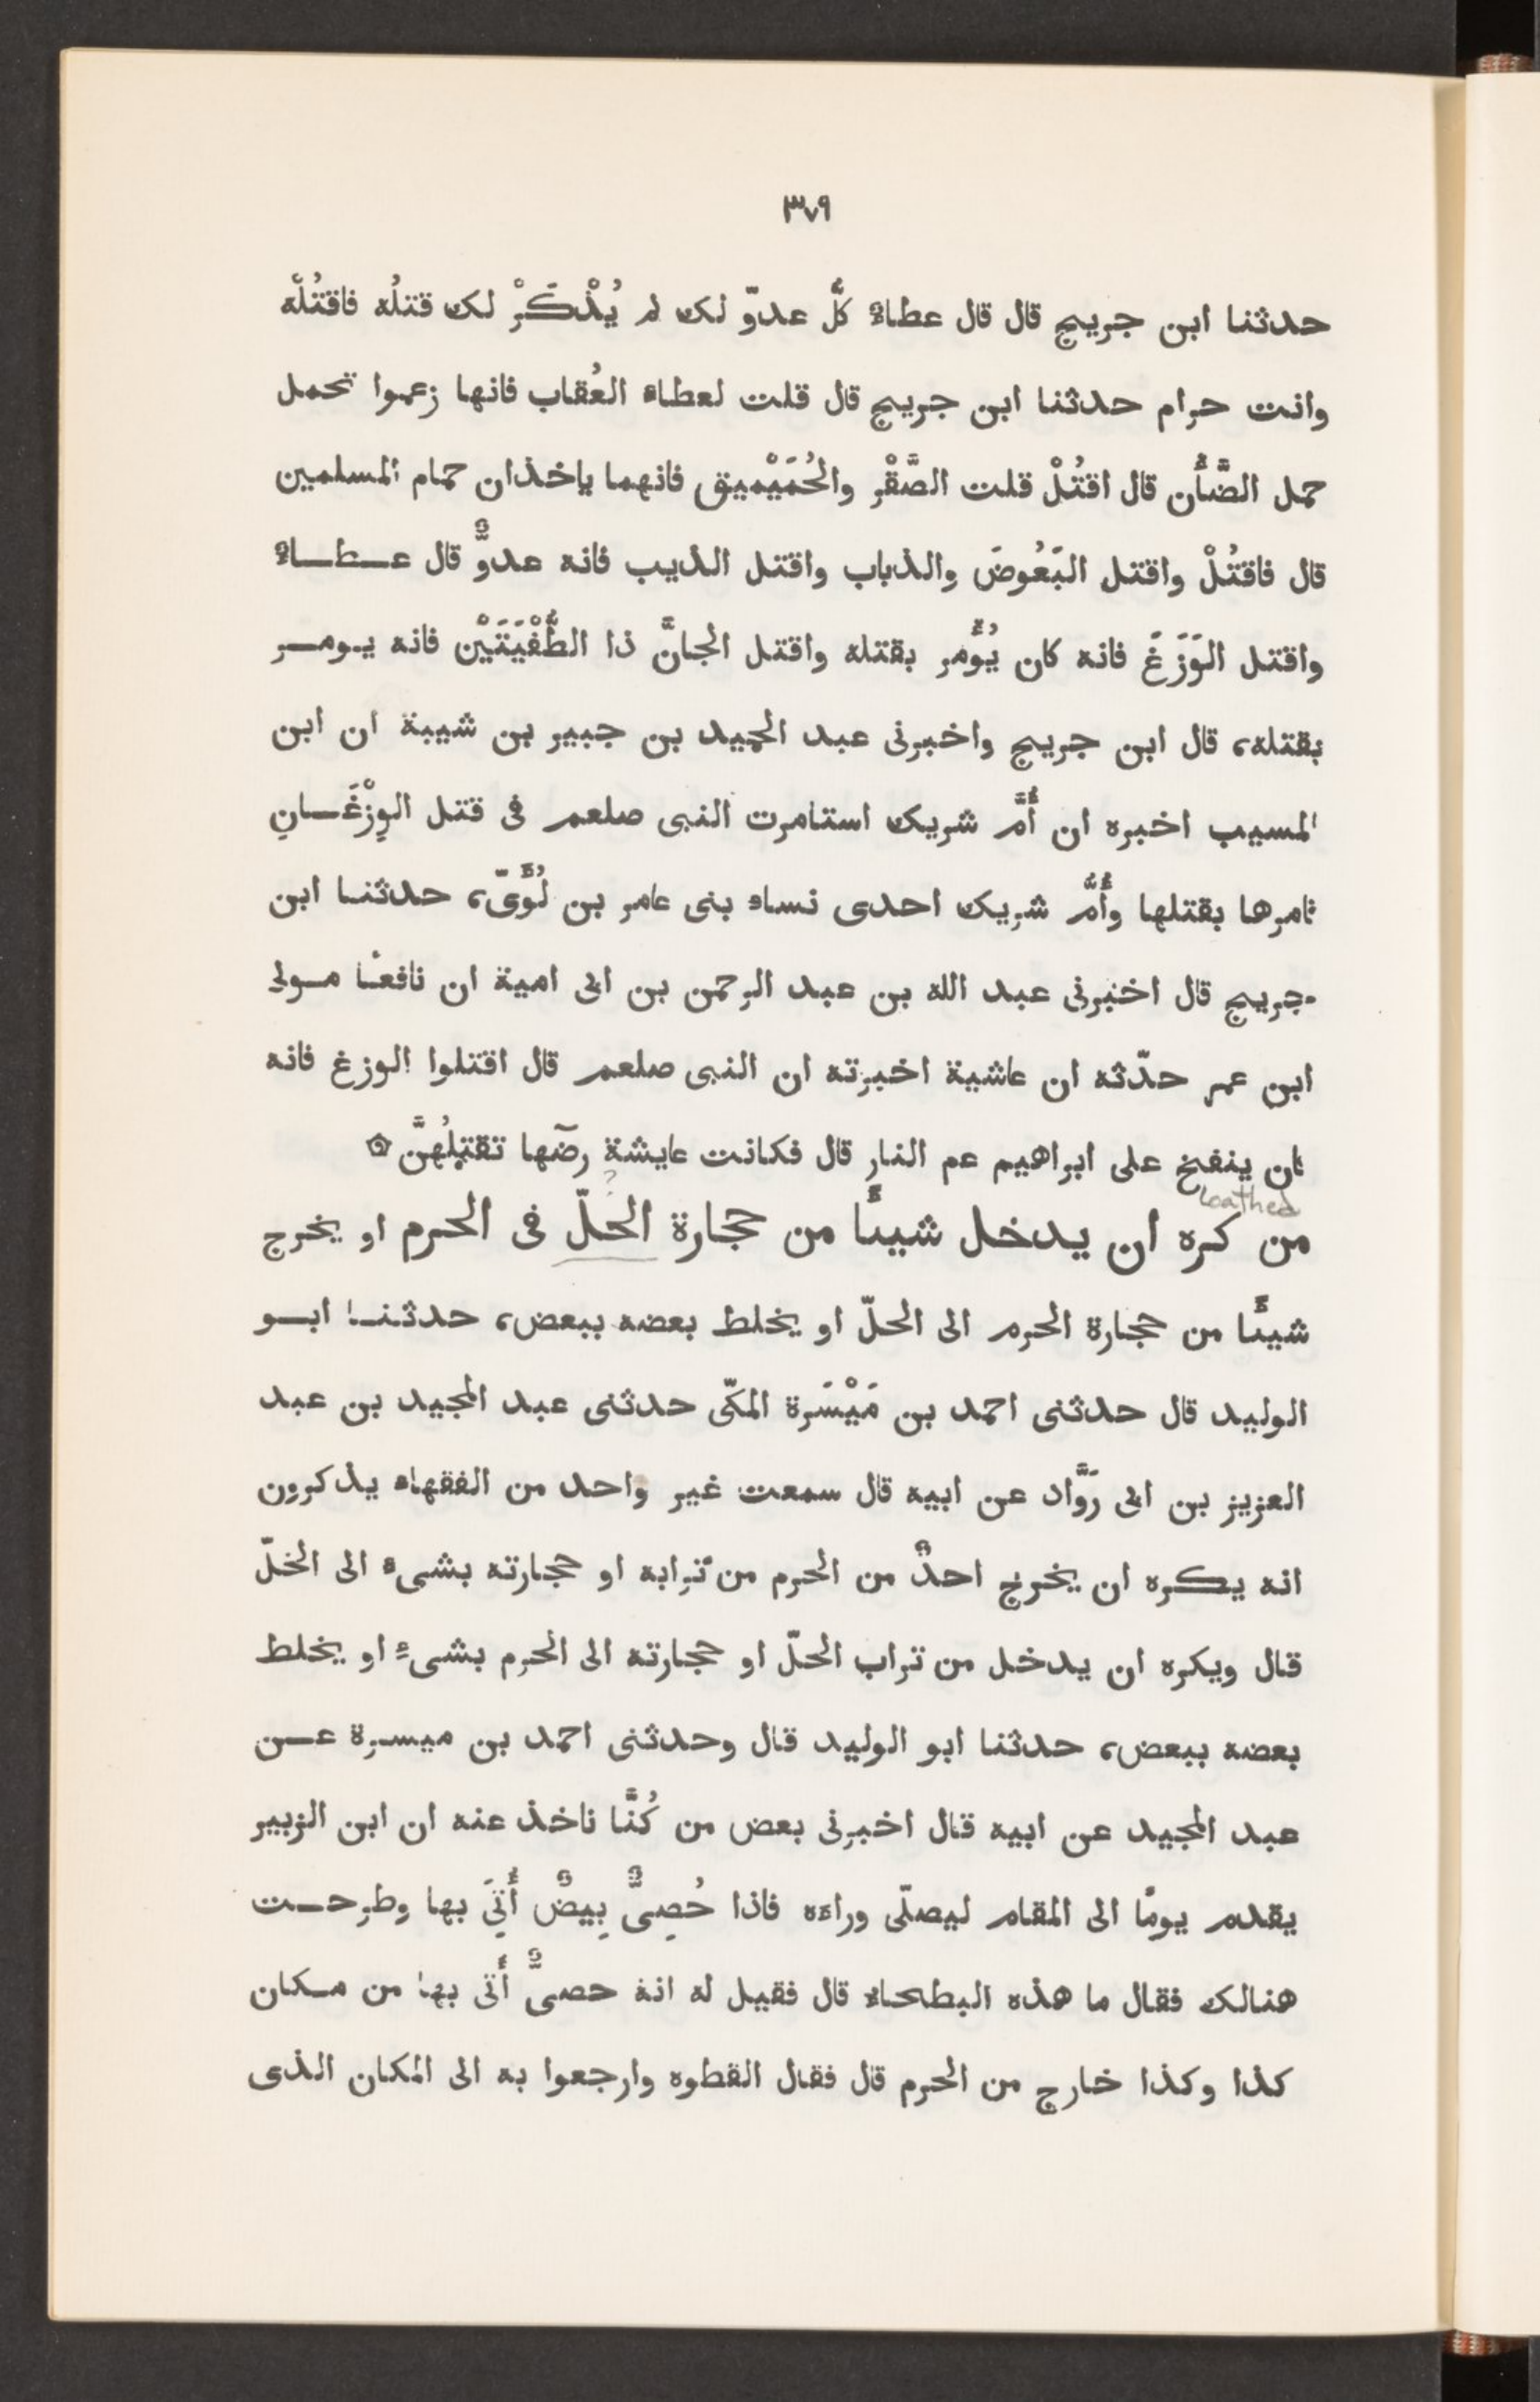 ٣٧٩
حدثنا ابن جريج قال قال عطاءٌ كلُّ عدوّ لك لم يُذْكَرْ لك قتلُه فاقتُلْه
وانت حرام حدثنا ابن جريج قال قلت لعطاء العُقاب فانها زعموا تحمل
حمل الضَّأن قال اقتُلْ قلت الصَّقْر والحُمَيْميق فانهما ياخذان حمام المسلمين
قال فاقتُلْ واقتل البَعُوضَ والذباب واقتل الذيب فانه عدوٌّ قال عطاءٌ
واقتل الوَزَغَ فانه كان يُؤمر بقتله واقتل الجانَّ ذا الطُّفْيَتَيْن فانه يومر
بقتله، قال ابن جريج واخبرنى عبد الحميد بن جبير بن شيبة ان ابن
المسيب اخبره ان أُمَّ شريك استامرت النبى صلعم فى قتل الوِزْغَانِ
فامرها بقتلها وأُمُّ شريك احدى نساء بنى عامر بن لُؤَىّ، حدثنا ابن
جريج قال اخبرنى عبد الله بن عبد الرحمن بن ابى امية ان نافعًا مولى
ابن عمر حدّثه ان عاشية اخبرته ان النبى صلعم قال اقتلوا الوزغ فانه
كان ينفخ على ابراهيم عم النار قال فكانت عايشة رضّها تقتلُهنَّ ۞
loathed ?
من كره ان يدخل شيئًا من حجارة الحلّ فى الحرم او يخرج
شيئًا من حجارة الحرم الى الحلّ او يخلط بعضه ببعض، حدثنا ابو
الوليد قال حدثنى احمد بن مَيْسَرة المكّى حدثنى عبد المجيد بن عبد
العزيز بن ابى رَوَّاد عن ابيه قال سمعت غير واحد من الفقهاء يذكرون
انه يكره ان يخرج احدٌ من الحرم من ترابه او حجارته بشىء الى الحلّ
قال ويكره ان يدخل من تراب الحلّ او حجارته الى الحرم بشىءٍ او يخلط
بعضه ببعض، حدثنا ابو الوليد قال وحدثنى احمد بن ميسرة عن
عبد المجيد عن ابيه قال اخبرنى بعض من كُنَّا ناخذ عنه ان ابن الزبير
يقدم يومًا الى المقام ليصلّى وراءه فاذا حُصِىٌّ بِيضٌ أُتِىَ بها وطرحت
هنالك فقال ما هذه البطحاء قال فقيل له انه حصىٌّ أُتى بها من مكان
كذا وكذا خارج من الحرم قال فقال القطوه وارجعوا به الى المكان الذى